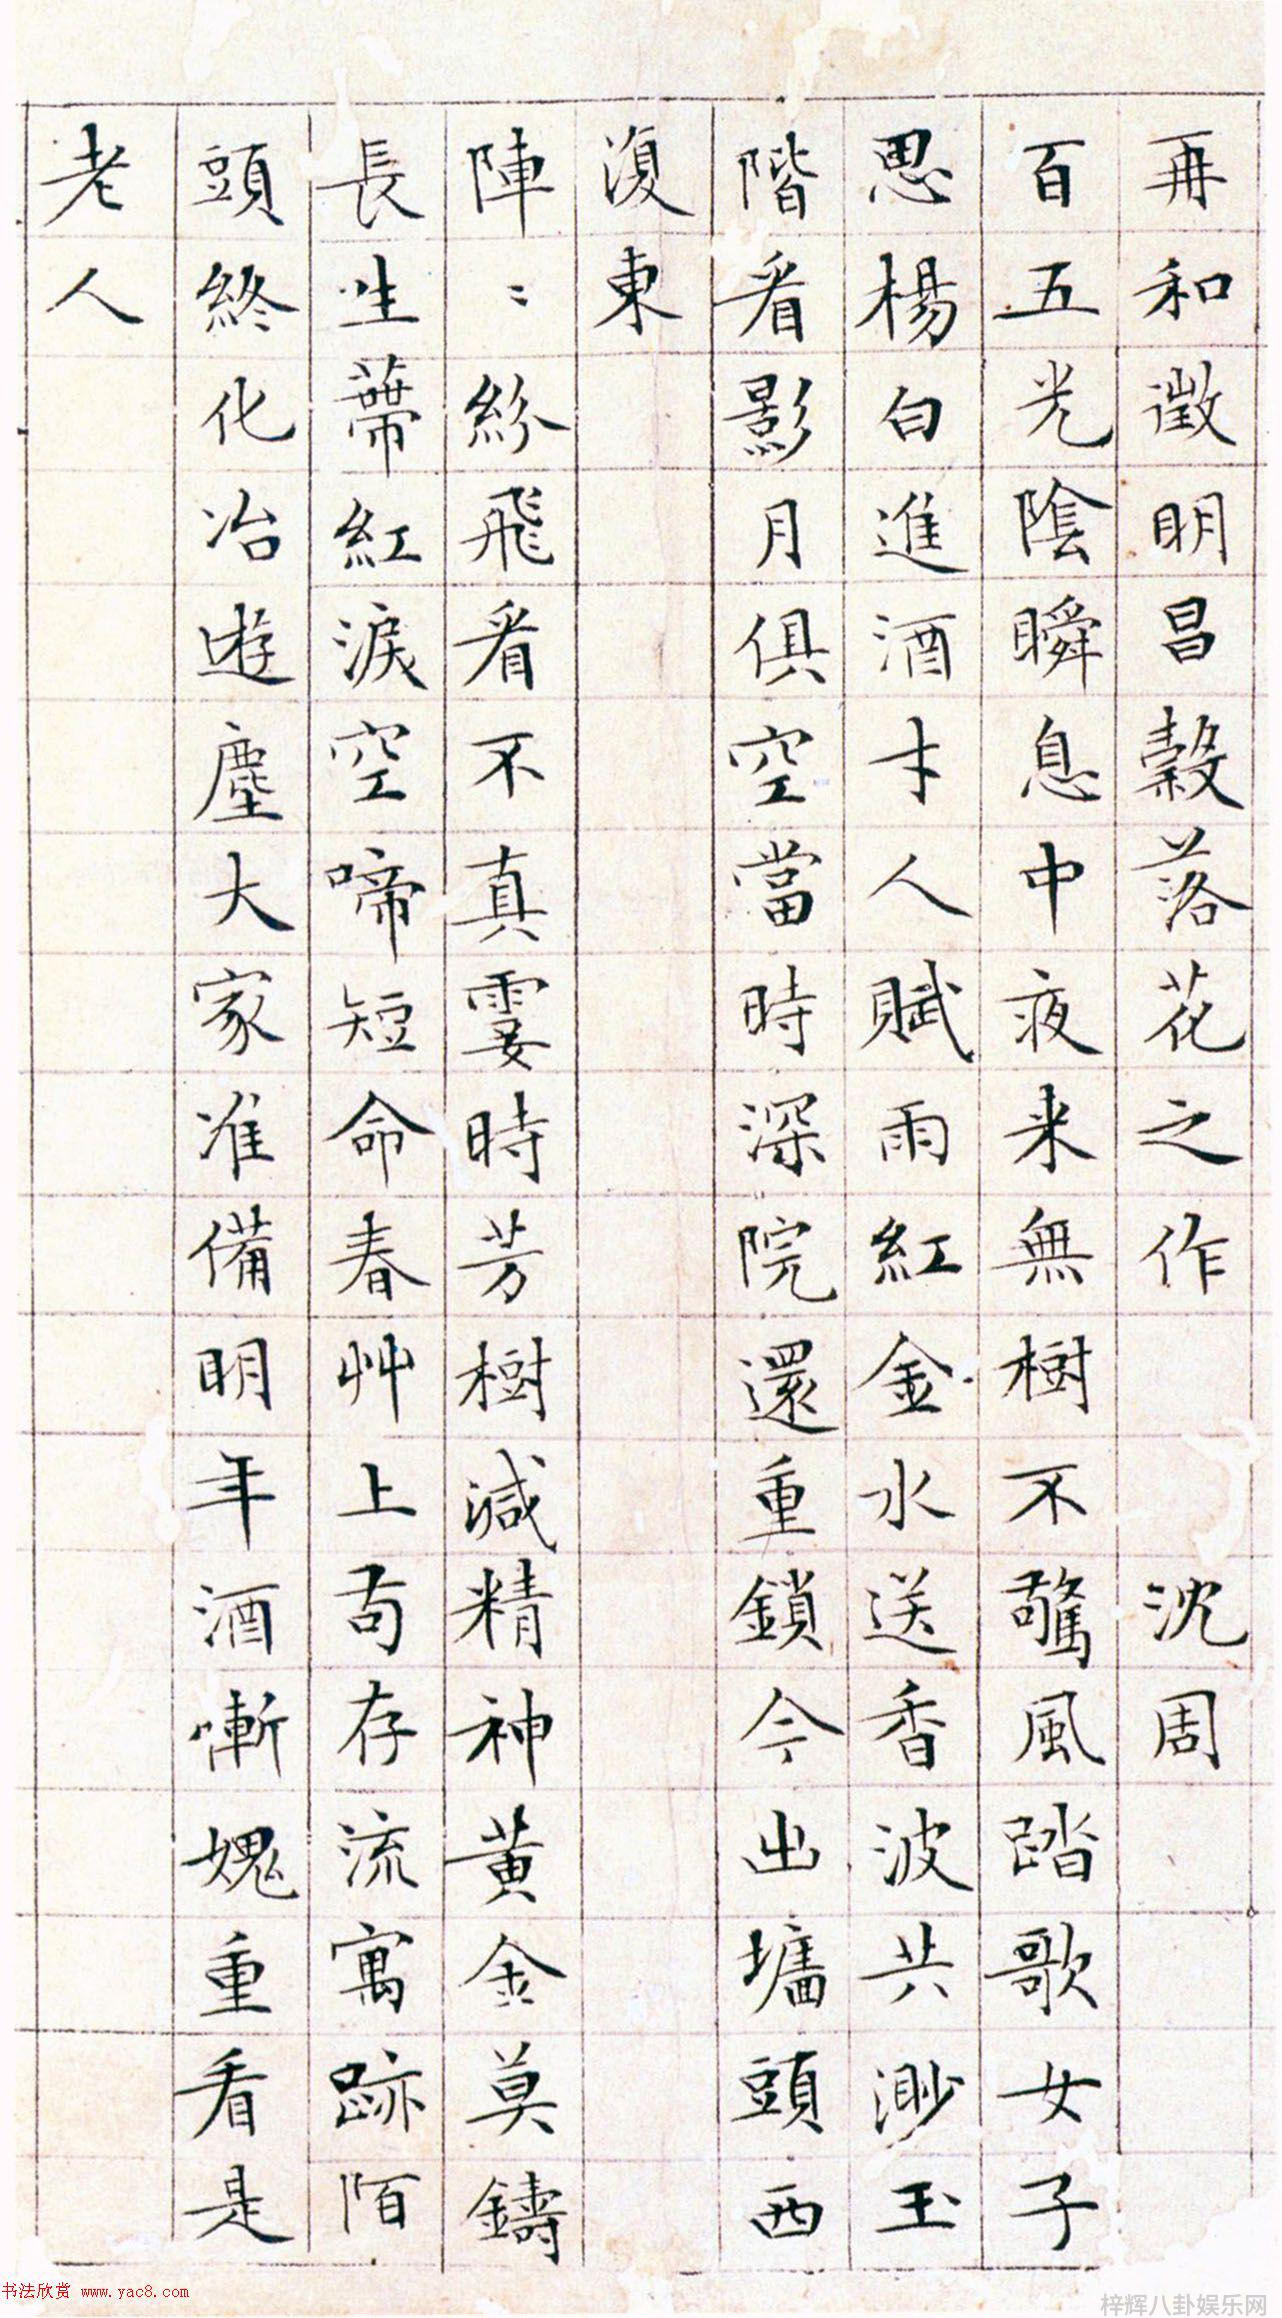 再和徵明昌穀落花之作沈周
百五光陰瞬息中夜来無樹不驚風踏歌女子
思楊白進酒才人賦雨紅金水送香波共渺玉
階看影月俱空當時深院還重鎖今出墻頭西
復東
陣〻紛飛看不真霎時芳樹減精神黄金莫鑄
長生蔕紅淚空啼短命春艸上苟存流寓跡陌
頭終化冶遊塵大家准備明年酒慚愧重看是
老人
书法欣赏 www.yac8.com
梓辉八卦娱乐网